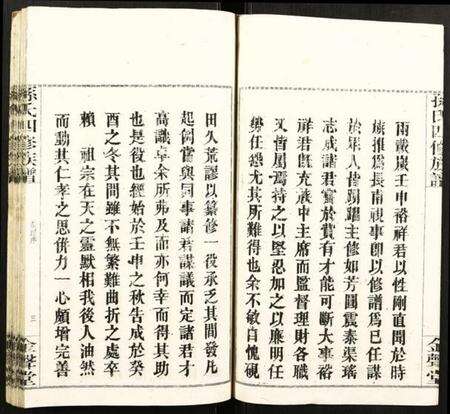 孫氏四修族譜
金聲堂
雨戴嵗壬申裕祥君以性剛直聞於時
族推爲長甫視事卽以修譜爲已任謀
於年人皆踴躍主修如芳圃震泰渠瑤
志成諸君實於贊有才能可斷大事裕
祥君旣充族中主席而監督理財各職
又皆屬焉持之以堅忍加之以廉明任
勞任怨尤其所難得也余不敏自愧硯
田久荒謬以纂修一役承乏其間發凡
起例嘗與同事諸君謀議而定諸君才
高識卓余所弗及而亦何幸而得其助
也是役也經始於壬申之秋告成於癸
酉之冬其間雖不無繁難曲折之處卒
賴 祖宗在天之靈默相我後人油然
而動其仁孝之思儕力一心頗增完善
孫氏四修族譜
三
金聲堂